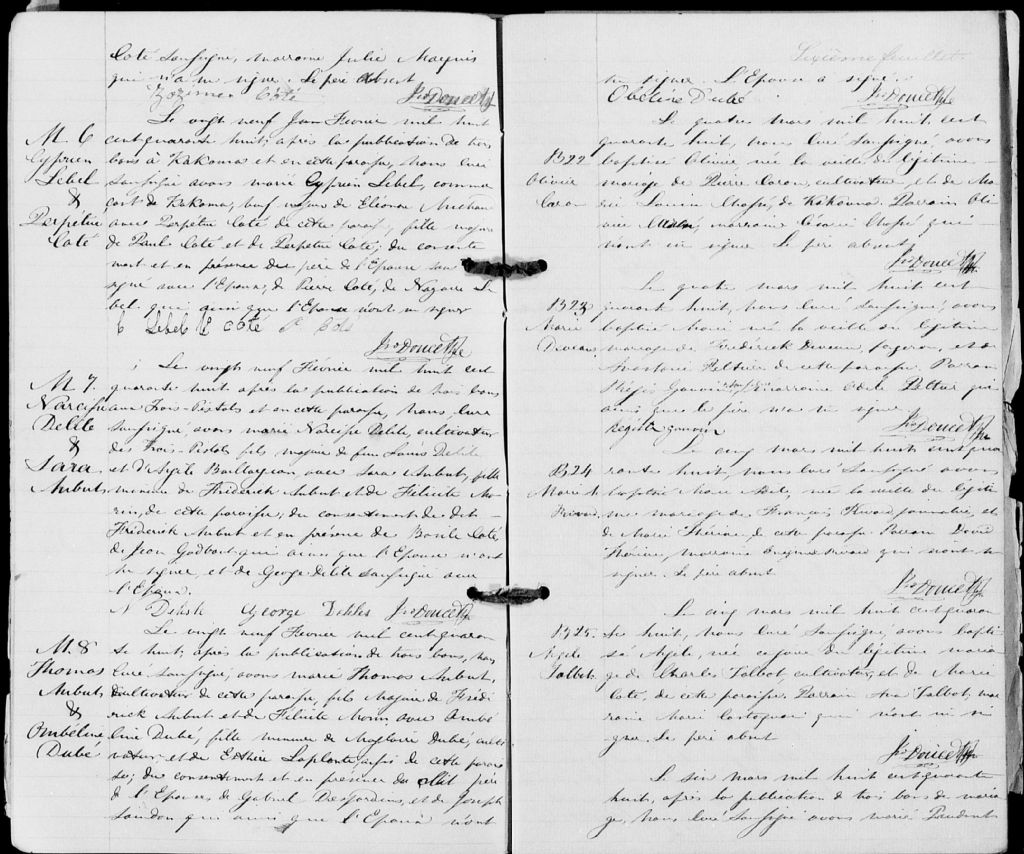 Coté soussigné, marraine Julie Marquis
qui n'a su signer. Le père absent
Zozime Côté Jos Doucet Ptre
M. 6
Cyprien
Lebel
&
Perpétue
Coté
Le vingt neuf Février mil huit
cent quarante huit, après la publication de trois
bans à Kakouna et en cette paroisse, Nous Curé
soussigné avons marié Cyprien Lebel,
de Kakouna, veuf majeur de Eléonore
avec Perpétue Coté de cette paroisse, fille majeure
de Paul Coté et de Perpétue Coté; du consente
ment et en présence du père de l'Epouse sous
signé avec l'Epoux, de Pierre Coté, de Nazaire Le
bel qui ainsi que l'Epouse n'ont su signer
C Lebel P Côté P Coté
Jos Doucet Ptre
M. 7.
Narcisse
Delile
&
Sara
Aubut
Le vingt neuf Février mil huit cent
quarante huit après la publication de trois bans
aux Trois-Pistoles et en cette paroisse, Nous Curé
soussigné, avons marié Narcisse Delile, cultivateur
des Trois-Pistoles fils majeur de feu Louis Delile
et d'Agile avec Sara Aubut, fille
mineure de Fréderick Aubut et de Félicité Mo
rin, de cette paroisse, du consentement de dit
Fréderick Aubut et en présence de Basile Coté,
de Jean Godbout qui ainsi que l'Epouse n'ont
su signer et de George Delile soussigné avec
l'Epoux.
N Delisle George Delisle Jos Doucet Ptre
M. 8
Thomas
Aubut
&
Ombéline
Dubé
Le vingt neuf Février mil cent quaran
te huit, après la publication de trois bans, nous
Curé soussigné, avons marié Thomas Aubut,
Cultivateur de cette paroisse, fils Majeur de Frédé
rick Aubut et de Félicité Morin, avec Ombé
line Dubé, fille mineure de Magloire Dubé, culti
vateur, et de Esthère Laplante aussi de cette parois
se; du consentement et en présence du dit père
de l'Epouse, de Gabriel Desjardins, et de Joseph
qui ainsi que l'Epoux n'ont
Sixième feuillet
su signer. L'Epouse a signé.
Obéline Dubé Jos Doucet Ptre
B22
Olivier
Caron
Le quatre mars mil huit cent
quarante huit, nous Curé soussigné, avons
baptisé Olivier né la veille du légitime
mariage de Pierre Caron, cultivateur, et de Ma
rie Louise, de Kakouna. Parrain Oli
vier, marraine Césarie qui
n'ont su signer. Le père absent.
Jos Doucet Ptre
B23
Marie
Deveau
Le quatre mars mil huit cent
quarante huit, nous Curé soussigné, avons
baptisé Marie né la veille du légitime
mariage de Fréderick Deveau, forgeron, et de
Anastasie Peltier de cette paroisse. Parrain
Régis Gauvin soussigné marraine Odile Peltier qui
ainsi que le père n'a su signer.
Registe gauvin Jos Doucet Ptre
B24
Marie A.
Rivard
Le cinq mars mil huit cent qua
rante huit, nous Curé soussigné avons
baptisé Marie, née la veille du légiti
me mariage de François Rivard journalier, et
de Marie Thériau, de cette paroisse. Parrain David
, marraine qui n'ont su
signer. Le père absent.
Jos Doucet Ptre
B25.
Agile
Talbot
Le cinq mars mil huit cent quaran
te huit, nous Curé soussigné, avons bapti
sé Agile, née ce jour du légitime maria
ge de Charles Talbot, cultivateur, et de Marie
Coté, de cette paroisse. Parrain Talbot, mar
raine Marie Castonguay qui n'ont su si
gner. Le père absent.
Jos Doucet Ptre
Le six mars mil huit cent quarante
huit, après la publication de trois bans de maria
ge, Nous Curé soussigné avons marié Prudent